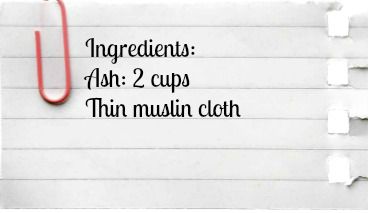 Ingredients:
Ash: 2 cups
Thin muslin cloth